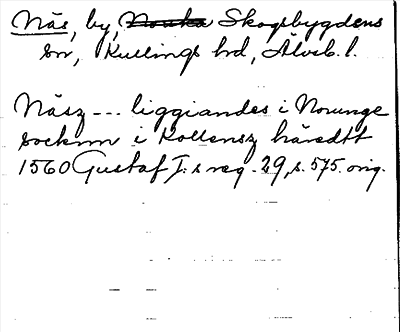 Näs, by, Skogsbygdens
sn, Kullings hd, Älvsb. l.
Näsz --- liggiandes i Norunge
socknn i Kollensz häredtt
1560 Gustaf I:s reg. 29, s. 575. orig.